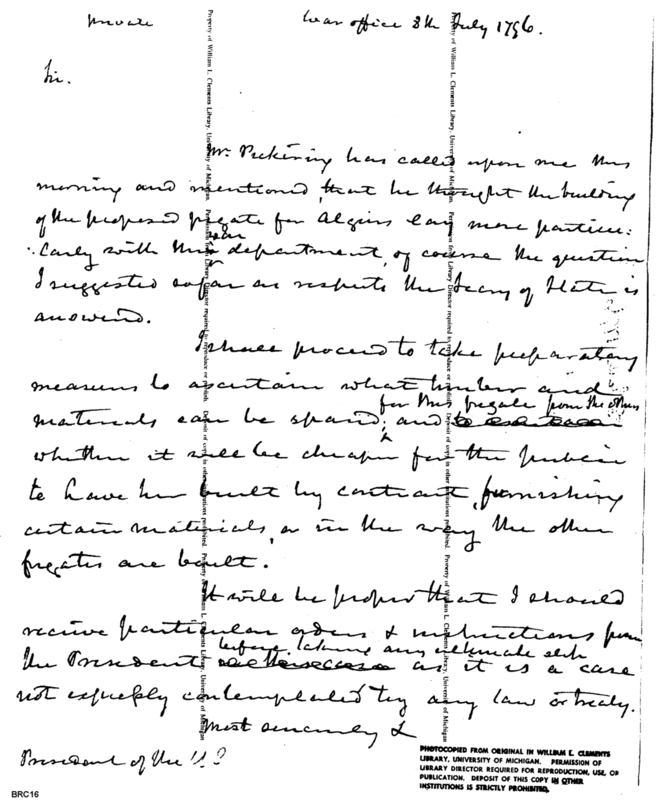 Private
War office 8th July 1796.
Sir.
Mr. Pickering has called upon me this
morning and mentioned, that he thought the building
of the proposed frigate for Algiers lay more particu:
:larly with this war department, of course the question
I suggested so far as respects the Secry of State is
answered.
I shall proceed to take preparatory
measures to ascertain what timber and
for this frigate from the others
materials can be spared; and
whether it will be cheaper for the public
to have her built by contract, furnishing
certain materials, or in the way the other
frigates are built.
It will be proper that I should
receive particular orders & instructions from
before taking any ultimate step
the President as it is a case
not expressly contemplated by any law or treaty.
Most sincerely &
President of the U.S
Property of William L. Clements Library, University of Michigan. Permission from Library Director required to reproduce or publish. Deposit of copy in other institutions prohibited.
Property of William L. Clements Library, University of Michigan
PHOTOCOPIED FROM ORIGINAL IN WILLIAM L. CLEMENTS
LIBRARY, UNIVERSITY OF MICHIGAN. PERMISSION OF
LIBRARY DIRECTOR REQUIRED FOR REPRODUCTION, USE, OR
PUBLICATION. DEPOSIT OF THIS COPY IN OTHER
INSTITUTIONS IS STRICTLY PROHIBITED.
BRC16